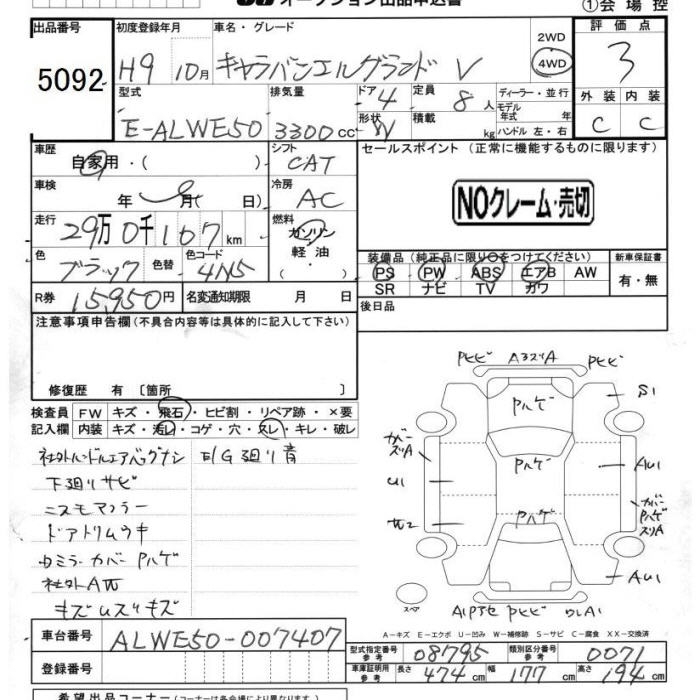 オークション出品申込書
①会場控
出品番号 初度登録年月 車名・グレード 2WD 評価点
5092 H9 10月 キャラバンエルグランド V 4WD 3
型式 排気量 ドア 4 定員 8人 ディーラー・並行 外装 内装
E-ALWE50 3300cc 形状 W 積載 kg モデル年式 年 ハンドル 左・右 C C
車歴 自家用・( ) シフト CAT セールスポイント (正常に機能するものに限ります)
車検 年 月( 日) 冷房 AC
NOクレーム・売切
走行 29万0千107km 燃料 ガソリン 軽油 ・( )
装備品 (純正品に限り○をつけてください) 新車保証書
色 ブラック 色替 色コード 4N5 PS PW ABS エアB AW 有・無
SR ナビ TV カワ
R券 15,950円 名変通知期限 月 日 後日品
注意事項申告欄 (不具合内容等は具体的に記入して下さい)
修復歴 有 〔箇所 〕
検査員 FW キズ・飛石・ヒビ割・リペア跡・×要
記入欄 内装 キズ・汚レ・コゲ・穴・スレ・キレ・破レ
社外ハンドルエアバッグナシ E/G廻リ音
下廻リサビ
ニスモマフラー
ドアトリムウキ
カミラーカバーPハゲ
社外AW
キズムスリキズ
PヒビA3スリA Pヒビ
Pハゲ S1
カバースリA Pハゲ AU1
U1 カバーPハゲスリA
Pハゲ
W2
AU1
スペア
A1P3セPヒビ
A-キズ E-エクボ U-凹み W-補修跡 S-サビ C-腐食 XX-交換済
車台番号 ALWE50-007407 型式指定番号 参考 08795 類別区分番号 参考 0071
登録番号 車庫証明用 参考 長さ 474cm 幅 177cm 高さ 194cm
希望出品コーナー (コーナーは各会場により異なります。)